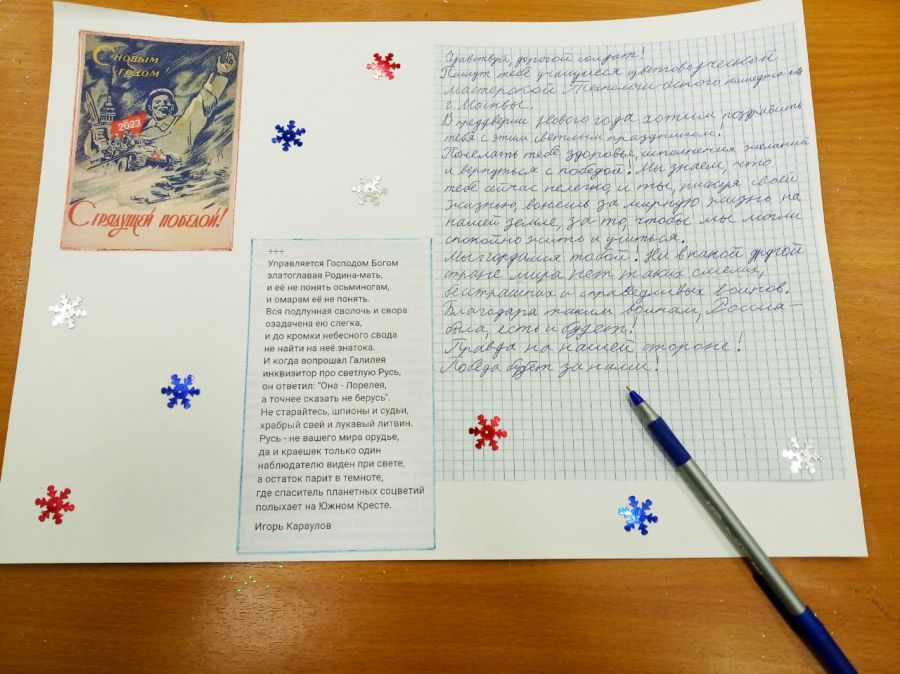 С НОВЫМ
ГОДОМ!
2023
С ГРЯДУЩЕЙ ПОБЕДОЙ!
+++
Управляется Господом Богом
златоглавая Родина-мать,
и её не понять осьминогам,
и омарам её не понять.
Вся подлунная сволочь и свора
озадачена ею слегка,
и до кромки небесного свода
не найти на неё знатока.
И когда вопрошал Галилея
инквизитор про светлую Русь,
он ответил: "Она - Лорелея,
а точнее сказать не берусь".
Не старайтесь, шпионы и судьи,
храбрый свей и лукавый литвин.
Русь - не вашего мира орудье,
да и краешек только один
наблюдателю виден при свете,
а остаток парит в темноте,
где спаситель планетных соцветий
полыхает на Южном Кресте.
Игорь Караулов
Здравствуй, дорогой солдат!
Пишут тебе учащиеся цветоводческой
мастерской Технологического колледжа
г. Москвы.
В преддверии Нового года хотим поздравить
тебя с этим светлым праздником!
Пожелать тебе здоровья, исполнения желаний
и вернуться с победой! Мы знаем, что
тебе сейчас нелегко, и ты, рискуя своей
жизнью, воюешь за мирную жизнь на
нашей земле, за то, чтобы мы могли
спокойно жить и учиться.
Мы гордимся тобой! Ни в какой другой
стране мира нет таких смелых,
бесстрашных и справедливых воинов.
Благодаря таким воинам, Россия -
была, есть и будет!
Правда на нашей стороне!
Победа будет за нами!